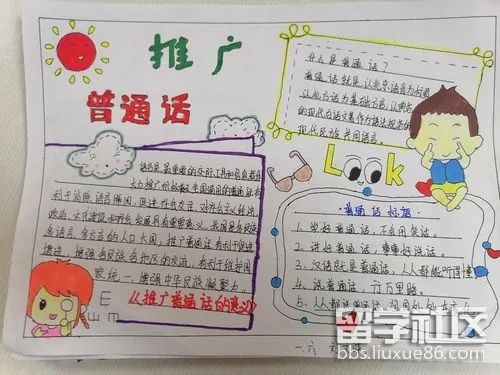 推广
普通话
什么是普通话？
普通话就是以北京语音为标准
以北方话为基础方言，以典范
的现代白话文著作为语法规范的
现代汉民族共同语言。
语言是最重要的交际工具和信息载体
大力推广
利于消除语言隔阂，促进社会交往，对社会主义经济
政治、文化建设和社会发展具有重要意义。我国是多民族
多语言、多方言的人口大国，推广普通话有利于促进
增进各民族各地区的交流，有利于维护国
家统一，增强中华民族凝聚力。
《推广普通话的意义》
Look
普通话标语
1、说好普通话，不会用笑话。
2、讲好普通话，
3、汉语就是普通话，人人都能听得懂
4、说普通话，行万里路。
5、人人都说普通话，
E
山 m
一.六
留学社区
bbs.liuxue86.com